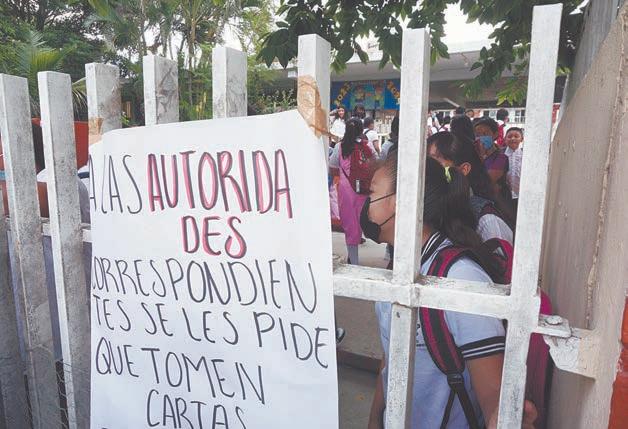 A LAS AUTORIDA
DES
CORRESPONDIEN
TES SE LES PIDE
QUE TOMEN
CARTAS